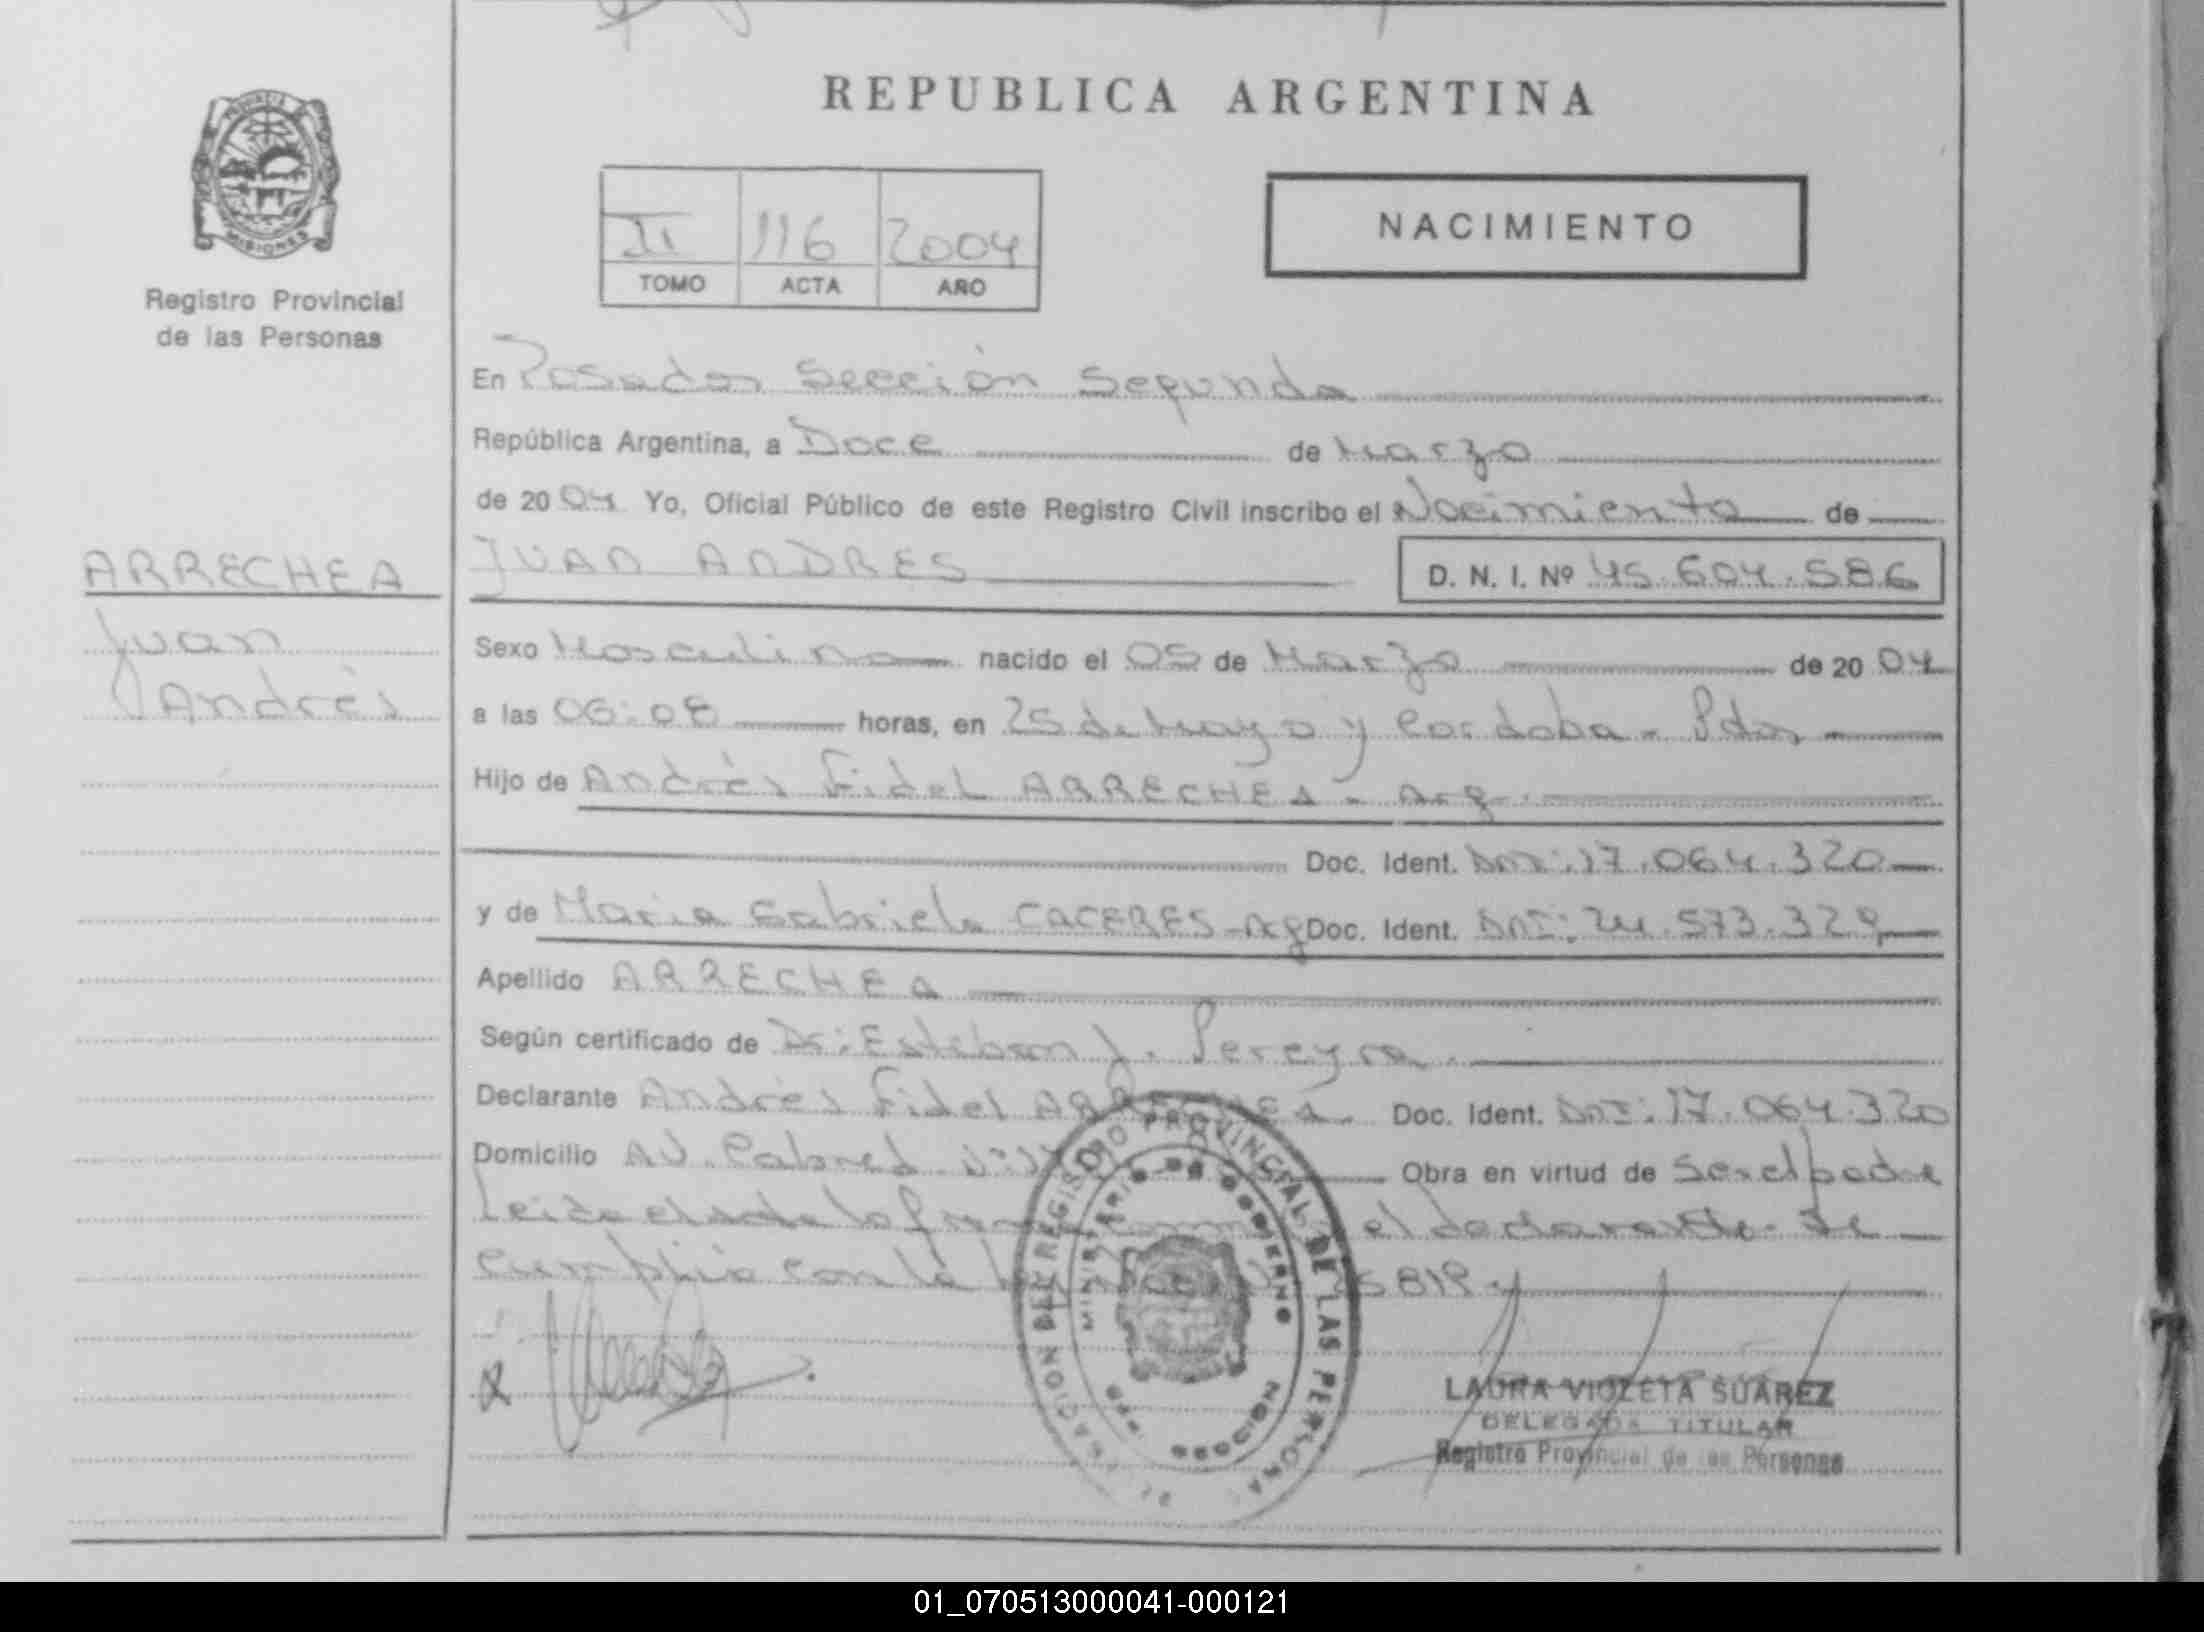 REPUBLICA ARGENTINA
PROVINCIA DE
MISIONES
Registro Provincial
de las Personas
II 116 2004
TOMO ACTA AÑO
NACIMIENTO
En Posadas Sección Segunda
República Argentina, a Doce de Marzo
de 2004 Yo, Oficial Público de este Registro Civil inscribo el Nacimiento de
ARRECHEA
Juan
Andrés
JUAN ANDRES D. N. I. Nº 45.604.586
Sexo Masculino nacido el 05 de Marzo de 2004
a las 06:08 horas, en 25 de Mayo y Cordoba - Pdas
Hijo de Andrés Fidel ARRECHEA - Arg.
Doc. Ident. DNI: 17.064.320
y de Maria Gabriela CACERES - Arg Doc. Ident. DNI: 24.573.329
Apellido ARRECHEA
Según certificado de Dr: Esteban J. Pereyra.
Declarante Andrés Fidel ARRECHEA. Doc. Ident. DNI: 17.064.320
Domicilio AV. Cabred Obra en virtud de Ser el padre
Leida el acta la firma el declarante. Se
cumplió con la
REGISTRO PROVINCIAL DE LAS PERSONAS
MINISTERIO DE GOBIERNO
MISIONES
LAURA VIOLETA SUAREZ
DELEGADA TITULAR
Registro Provincial de las Personas
01_070513000041-000121